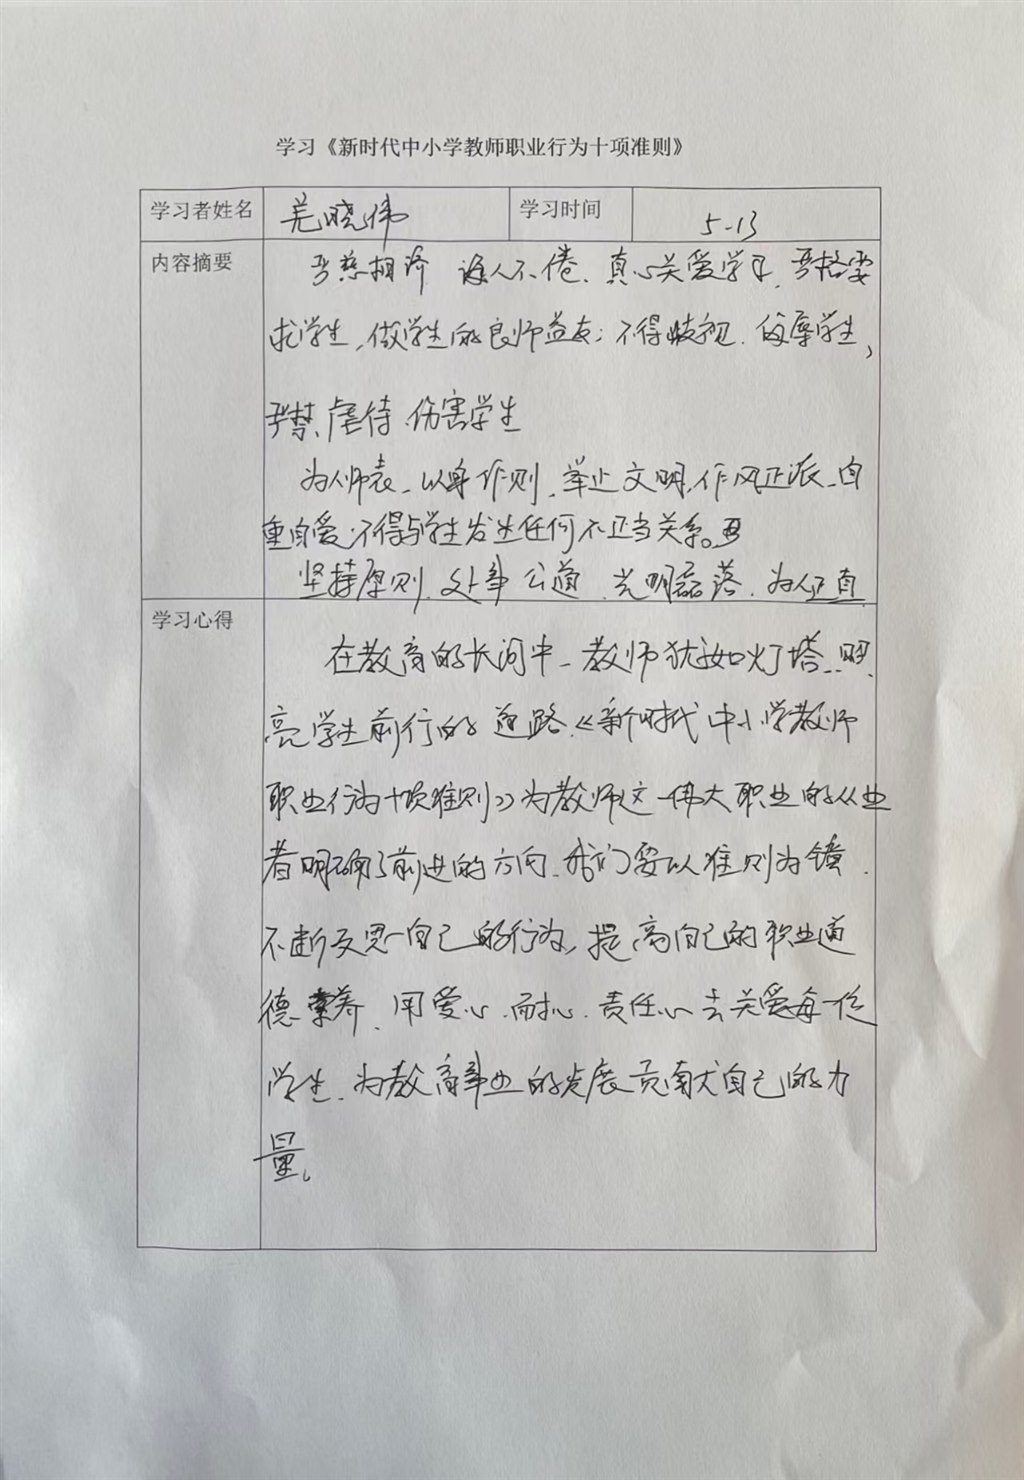 学习《新时代中小学教师职业行为十项准则》
学习者姓名 羌晓伟 学习时间 5-13
内容摘要 严慈相济 诲人不倦、真心关爱学生,严格要
求学生,做学生的良师益友;不得歧视、侮辱学生,
严禁虐待、伤害学生
为人师表、以身作则、举止文明、作风正派、自
重自爱;不得与学生发生任何不正当关系。
坚持原则、处事公道、光明磊落、为人正直
学习心得 在教育的长河中,教师犹如灯塔、照
亮学生前行的道路.《新时代中小学教师
职业行为十项准则》为教师这一伟大职业的从业
者明确了前进的方向、我们要以准则为镜,
不断反思自己的行为,提高自己的职业道
德素养、用爱心、耐心、责任心去关爱每一位
学生、为教育事业的发展贡献自己的力
量。